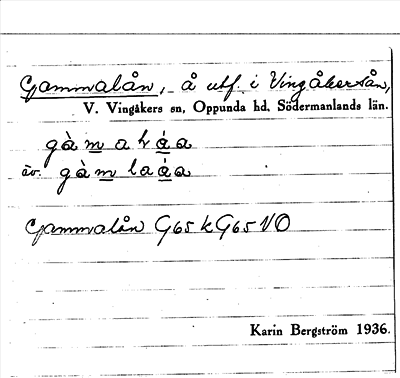 Gammalån, å utf. i Vingåkersån,
V. Vingåkers sn, Oppunda hd, Södermanlands län.
gàmaháa
äv. gàmlaáa
Gammalån G65 k G65 VO
Karin Bergström 1936.